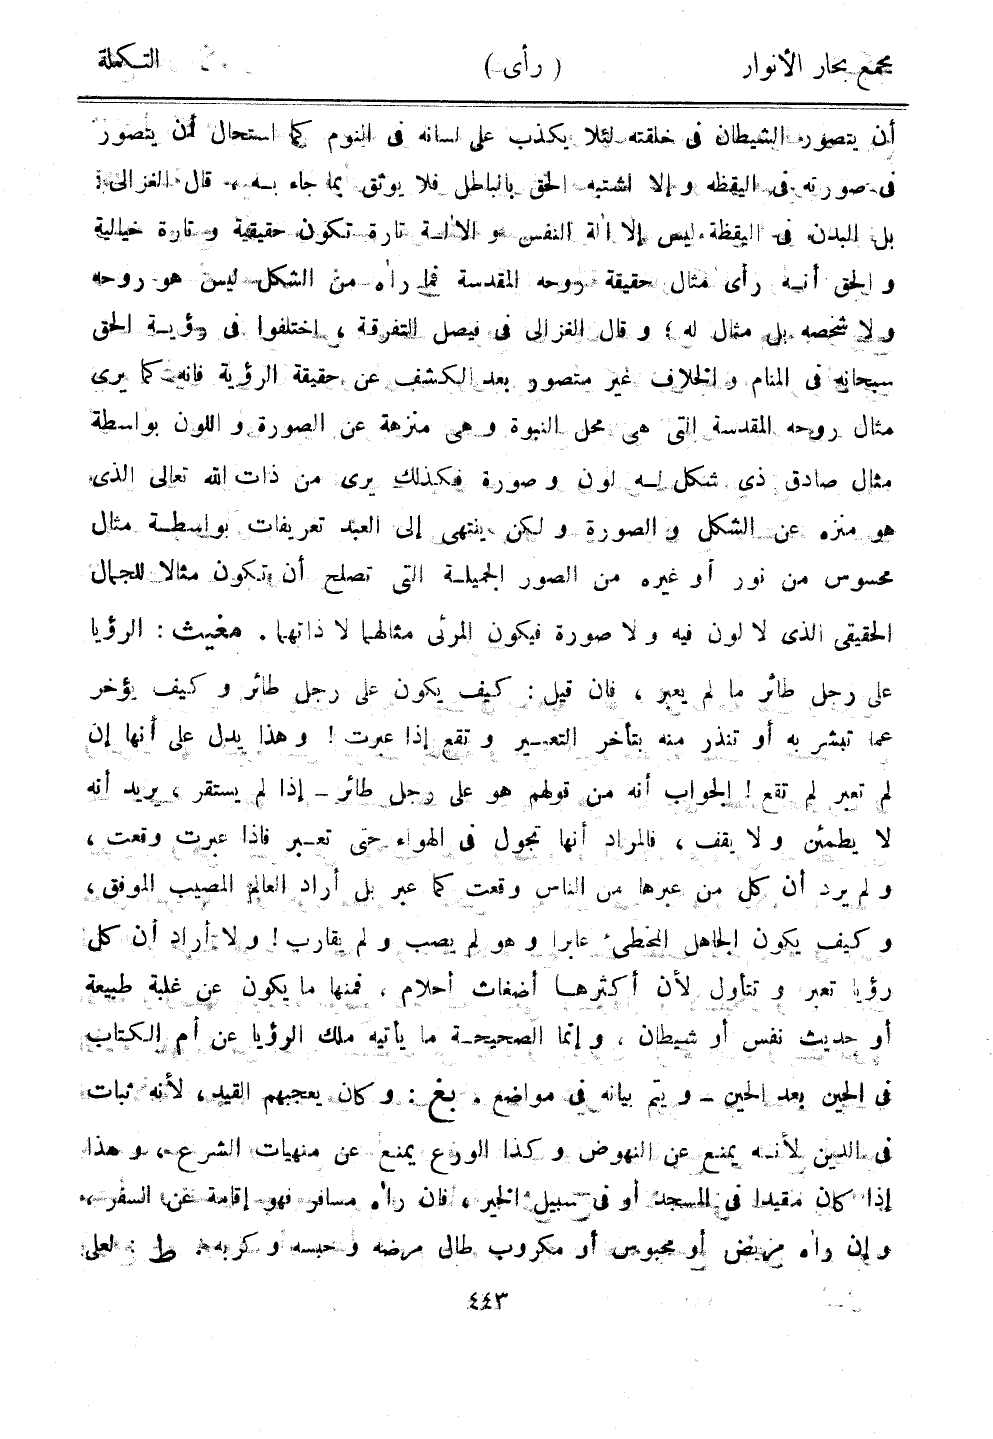 مجمع بحار الأنوار ( رأى ) التكملة
أن يتصوره الشيطان فى خلقته لئلا يكذب على لسانه فى النوم كما استحال أن يتصور
فى صورته فى اليقظه و إلا اشتبه الحق بالباطل فلا يوثق بما جاء به ، قال الغزالى :
بل البدن فى اليقظة ليس إلا آلة النفس و الآلة تارة تكون حقيقية و تارة خيالية
و الحق أنه رأى مثال حقيقة روحه المقدسة فما رآه من الشكل ليس هو روحه
و لا شخصه بل مثال له ؛ و قال الغزالى فى فيصل التفرقة ، اختلفوا فى رؤية الحق
سبحانه فى المنام و الخلاف غير متصور بعد الكشف عن حقيقة الرؤية فانه كما يرى
مثال روحه المقدسة التى هى محل النبوة و هى منزهة عن الصورة و اللون بواسطة
مثال صادق ذى شكل له لون و صورة فكذلك يرى من ذات الله تعالى الذى
هو منزه عن الشكل و الصورة و لكن ينتهى إلى العبد تعريفات بواسطة مثال
محسوس من نور أو غيره من الصور الجميلة التى تصلح أن تكون مثالا للجمال
الحقيقى الذى لا لون فيه و لا صورة فيكون المرئى مثالهما لا ذاتهما . مغيث : الرؤيا
على رجل طائر ما لم يعبر ، فان قيل : كيف يكون على رجل طائر و كيف يؤخر
عما تبشر به أو تنذر منه بتأخر التعبير و تقع إذا عبرت ! و هذا يدل على أنها إن
لم تعبر لم تقع ! الجواب أنه من قولهم هو على رجل طائر ــ إذا لم يستقر ، يريد أنه
لا يطمئن و لا يقف ، فالمراد أنها تجول فى الهواء حتى تعبر فاذا عبرت وقعت ،
و لم يرد أن كل من عبرها من الناس وقعت كما عبر بل أراد العالم المصيب الموفق ،
و كيف يكون الجاهل المخطئ عابرا و هو لم يصب و لم يقارب ! و لا أراد أن كل
رؤيا تعبر و تتأول لأن أكثرها أضغاث أحلام ، فمنها ما يكون عن غلبة طبيعة
أو حديث نفس أو شيطان ، و إنما الصحيحة ما يأتيه ملك الرؤيا عن أم الكتاب
فى الحين بعد الحين ــ و يتم بيانه فى مواضع . بغ : و كان يعجبهم القيد ، لأنه ثبات
فى الدين لأنه يمنع عن النهوض و كذا الورع يمنع عن منهيات الشرع ، و هذا
إذا كان مقيدا فى المسجد أو فى سبيل الخير ، فان رآه مسافر فهو إقامة عن السفر ،
و إن رآه مريض أو محبوس أو مكروب طال مرضه و حبسه و كربه . ط : لعلى
٤٤٣